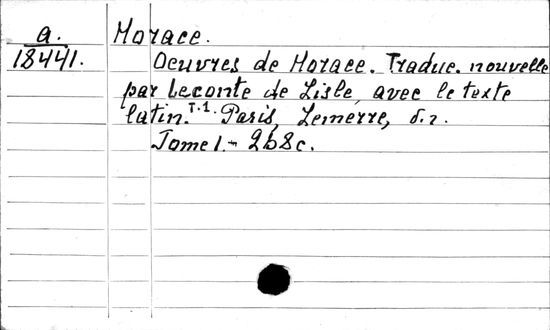 a.
18441.
Horace.
Oeuvres de Horace. Traduc. nouvelle
par Leconte de Lisle avec le texte
latin. T.1. Paris, Lemerre, s.a.
Tome I. - 268 c.